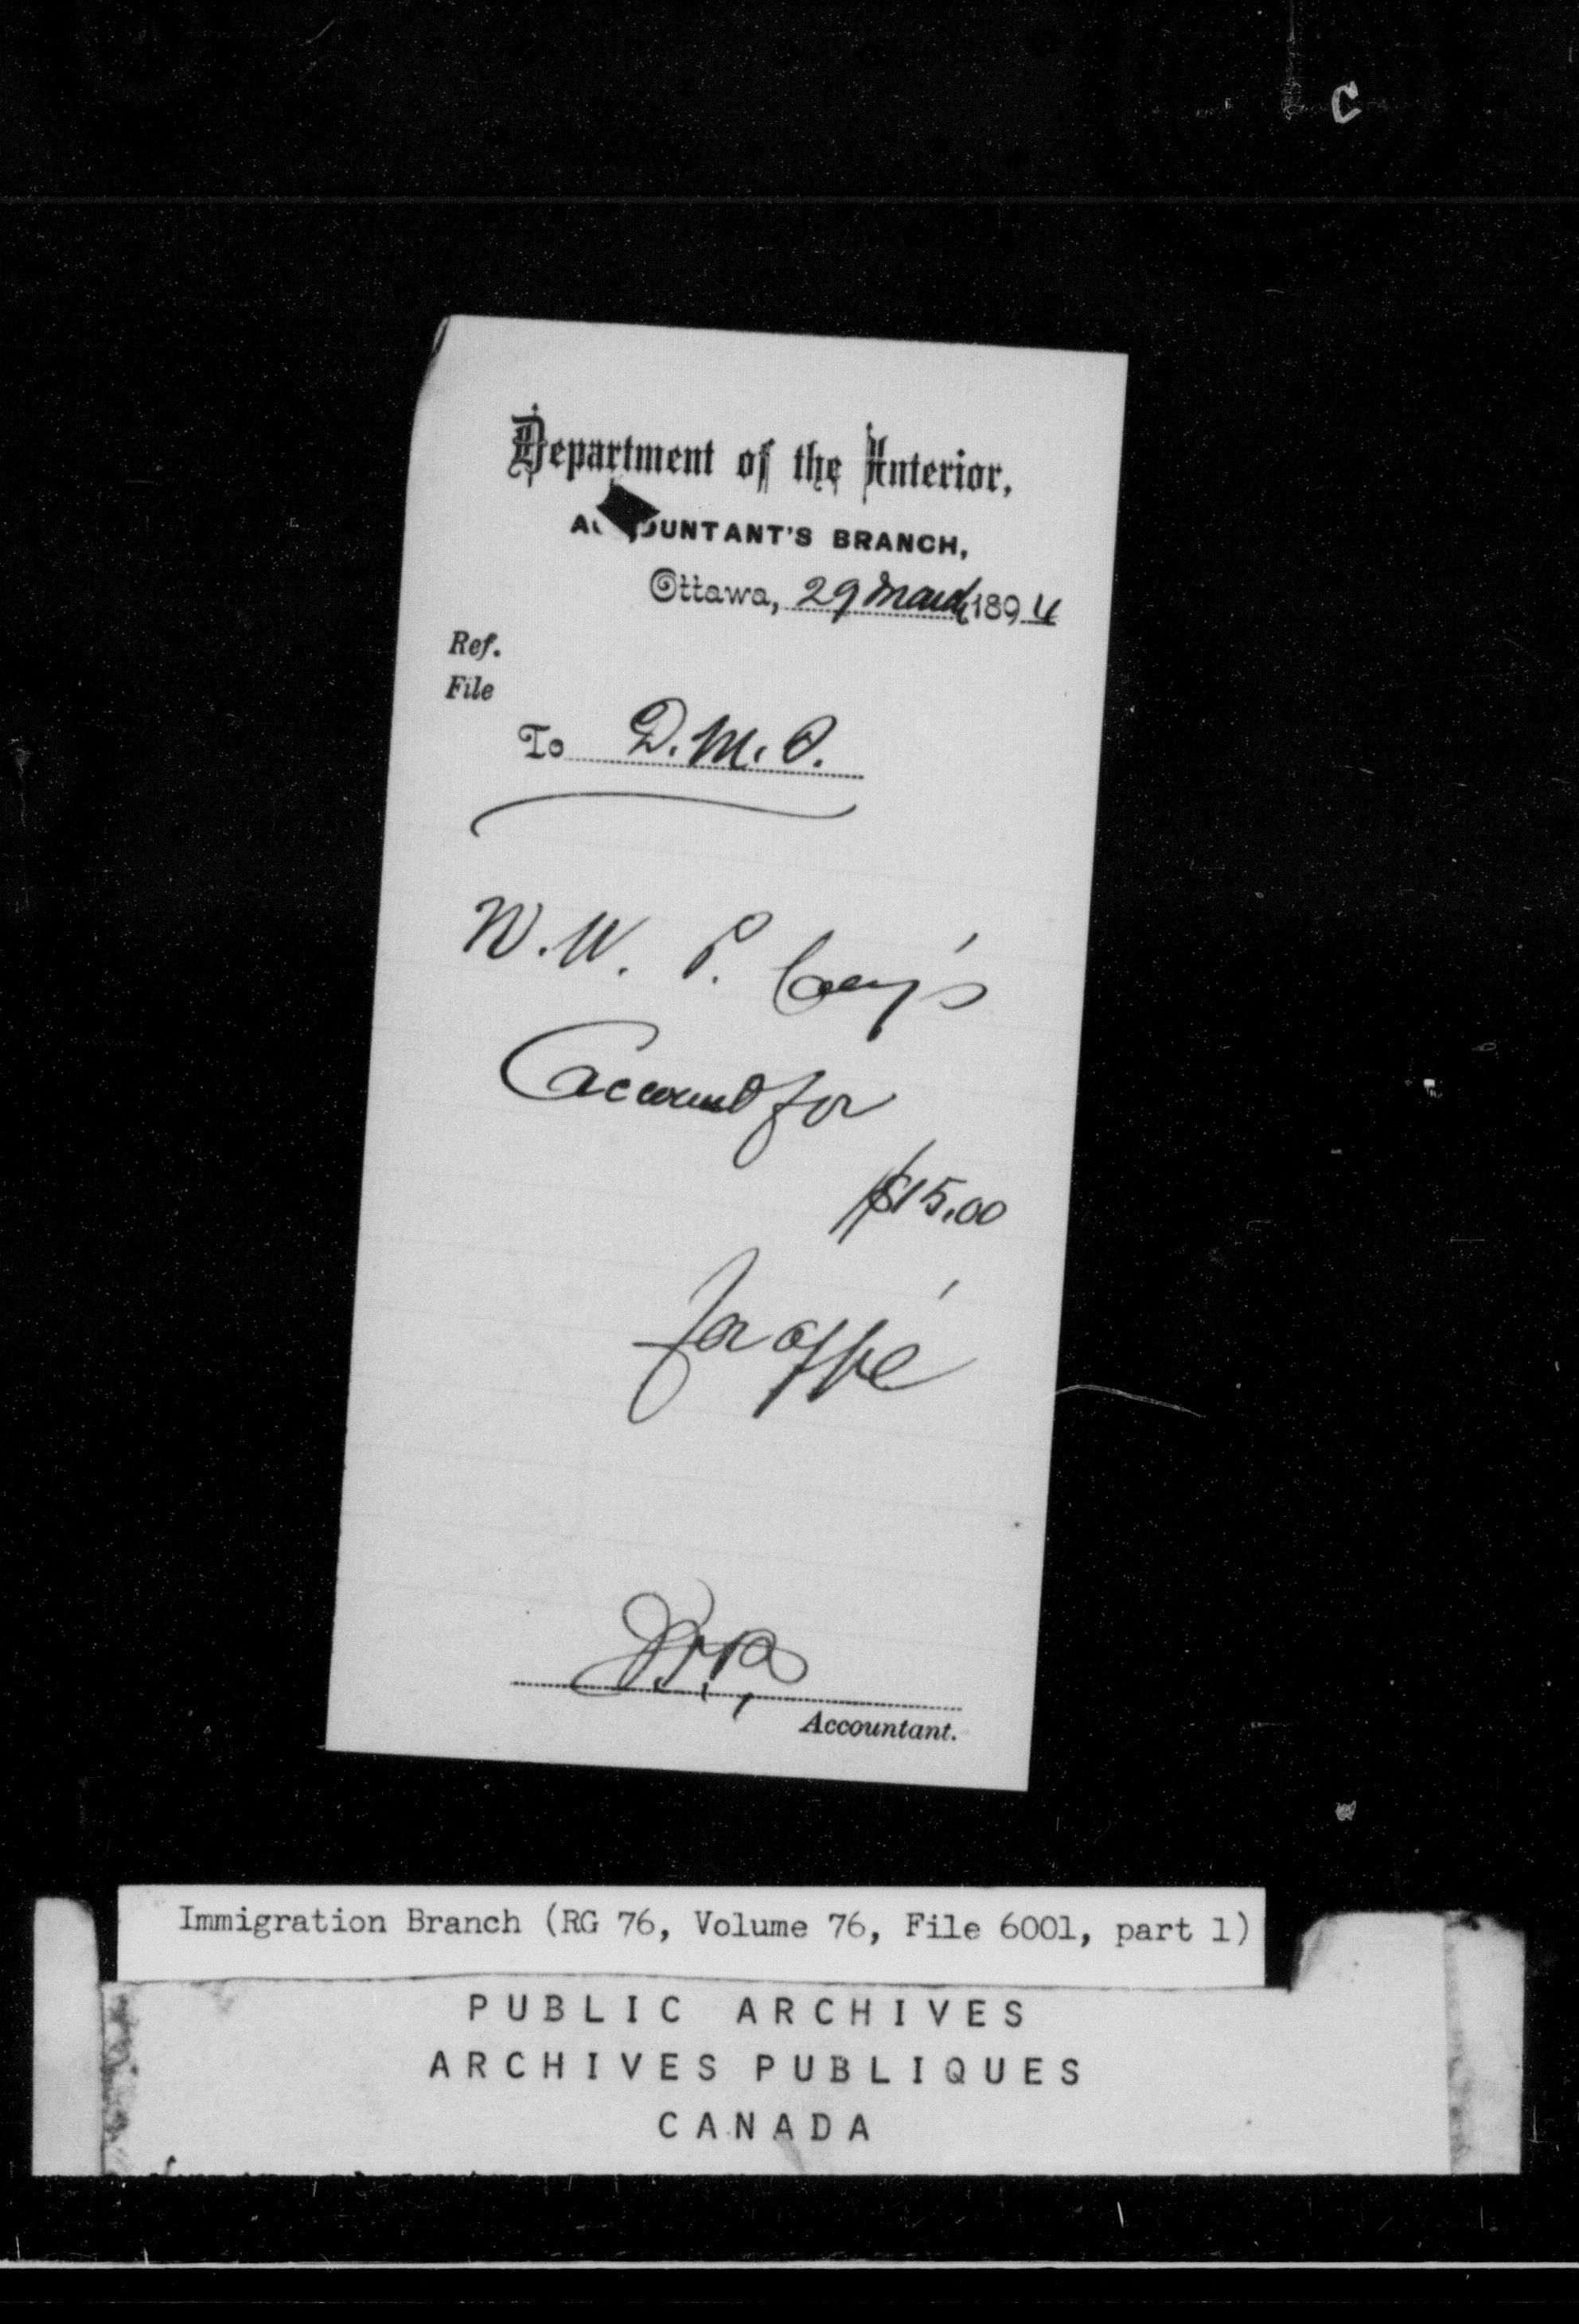 C
Department of the Interior,
ACCOUNTANT'S BRANCH,
Ottawa, 29 March 1894
Ref.
File
To D.M.O.
N.W. P. Coy's
Account for
$15.00
for app'l
Accountant.
Immigration Branch (RG 76, Volume 76, File 6001, part 1)
PUBLIC ARCHIVES
ARCHIVES PUBLIQUES
CANADA